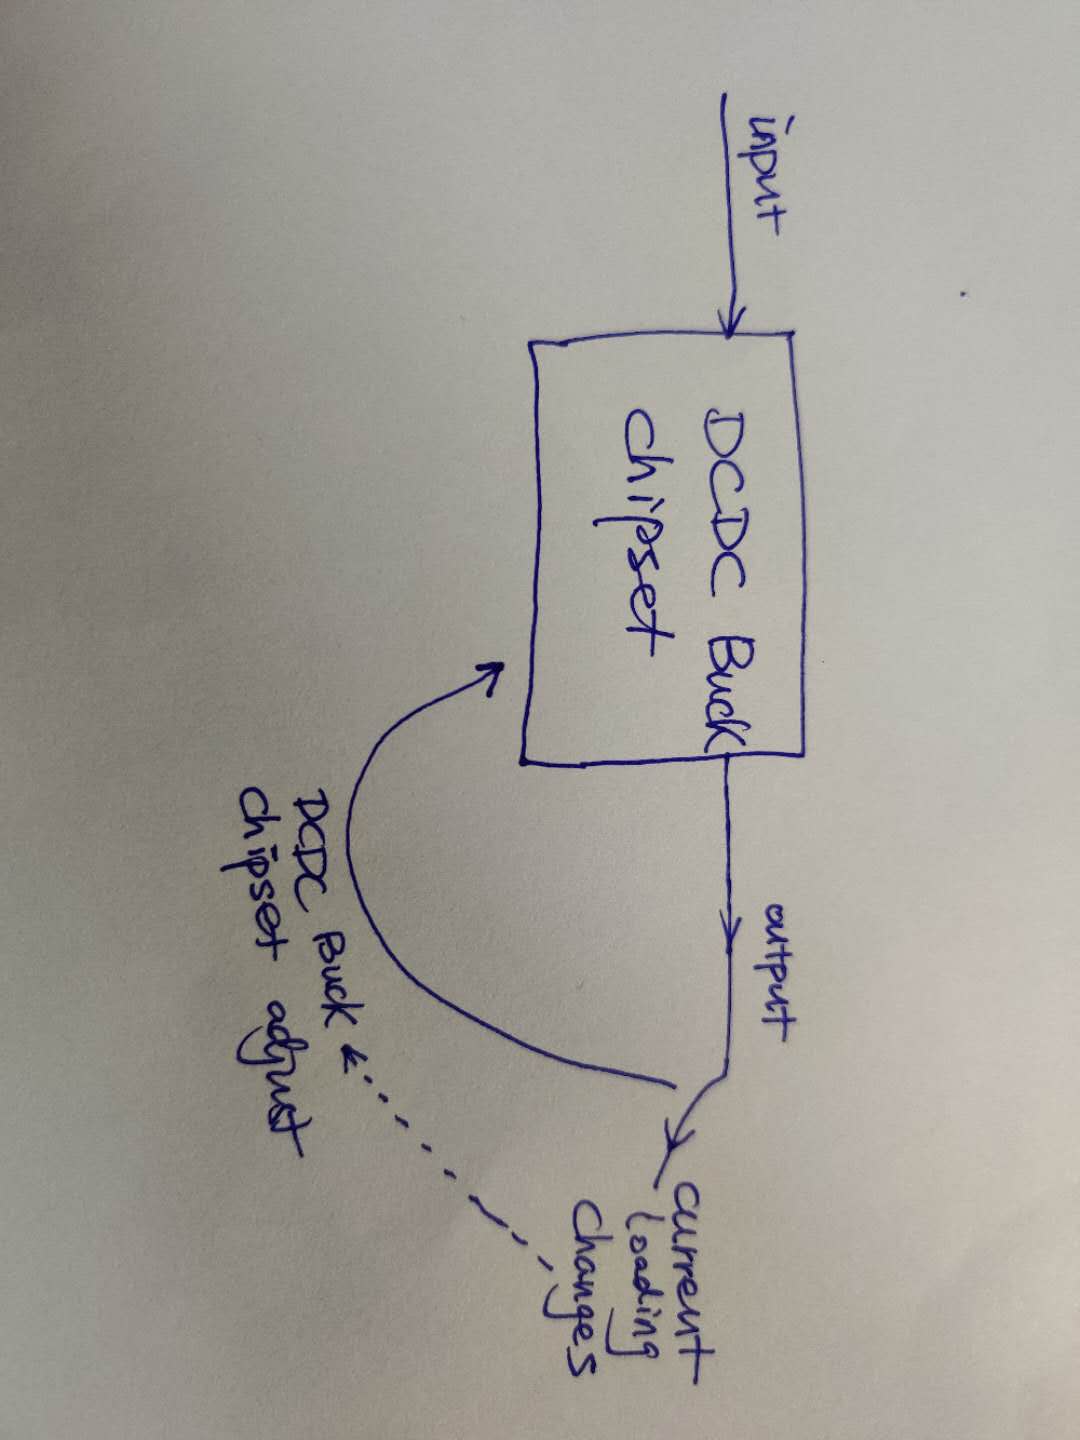 input
output
DCDC Buck
chipset
current
loading
changes
DCDC Buck
chipset adjust